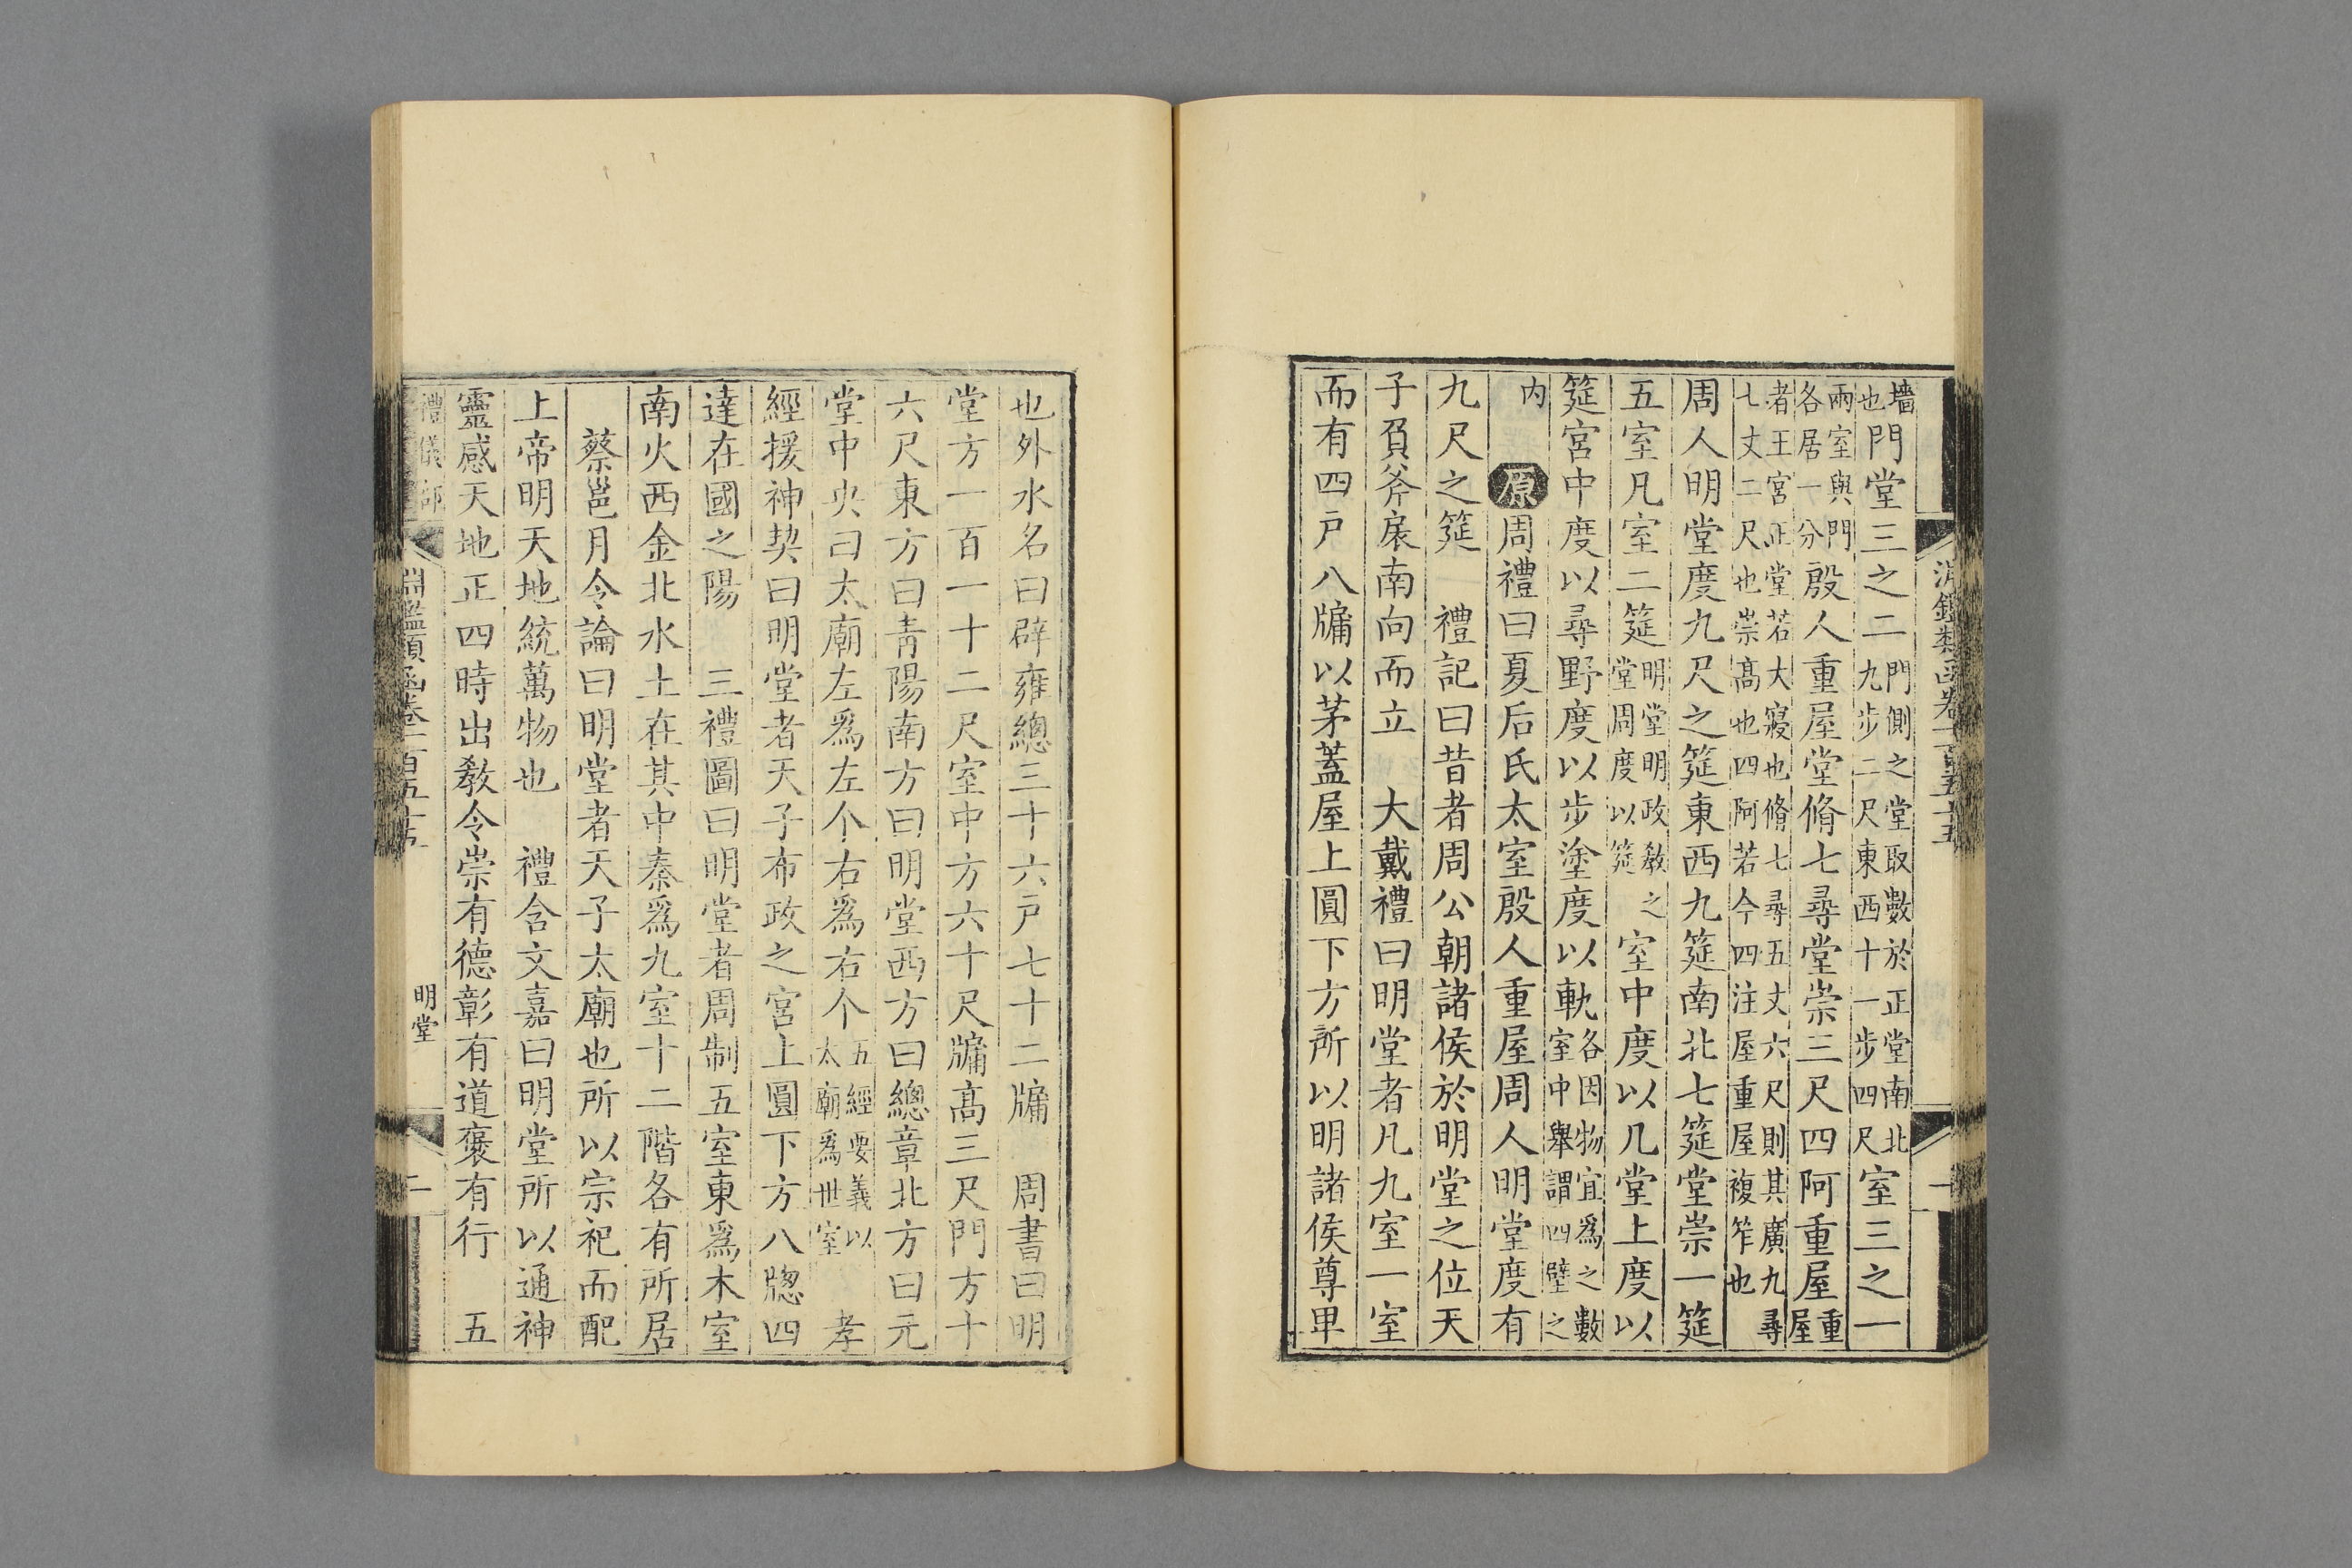 墻也門堂三之二門側之堂取數於正堂南北九步二尺東西十一步四尺室三之一
兩室與門各居一分殷人重屋堂脩七尋堂崇三尺四阿重屋重屋
者王宮正堂若大寢也脩七尋五丈六尺則其廣九尋七丈二尺也崇高也四阿若今四注屋重屋複笮也
周人明堂度九尺之筵東西九筵南北七筵堂崇一筵
五室凡室二筵明堂明政教之堂周度以筵室中度以几堂上度以
筵宮中度以尋野度以步塗度以軌各因物宜爲之數室中舉謂四壁之
內 原周禮曰夏后氏太室殷人重屋周人明堂度有
九尺之筵 禮記曰昔者周公朝諸侯於明堂之位天
子負斧扆南向而立 大戴禮曰明堂者凡九室一室
而有四戸八牖以茅蓋屋上圓下方所以明諸侯尊卑
也外水名曰辟雍總三十六戸七十二牖 周書曰明
堂方一百一十二尺室中方六十尺牖高三尺門方十
六尺東方曰青陽南方曰明堂西方曰總章北方曰元
堂中央曰太廟左爲左个右爲右个五經要義以太廟爲世室 孝
經援神契曰明堂者天子布政之宮上圓下方八牎四
達在國之陽 三禮圖曰明堂者周制五室東爲木室
南火西金北水土在其中秦爲九室十二階各有所居
蔡邕月令論曰明堂者天子太廟也所以宗祀而配
上帝明天地統萬物也 禮含文嘉曰明堂所以通神
靈感天地正四時出教令崇有德彰有道褒有行 五
明堂